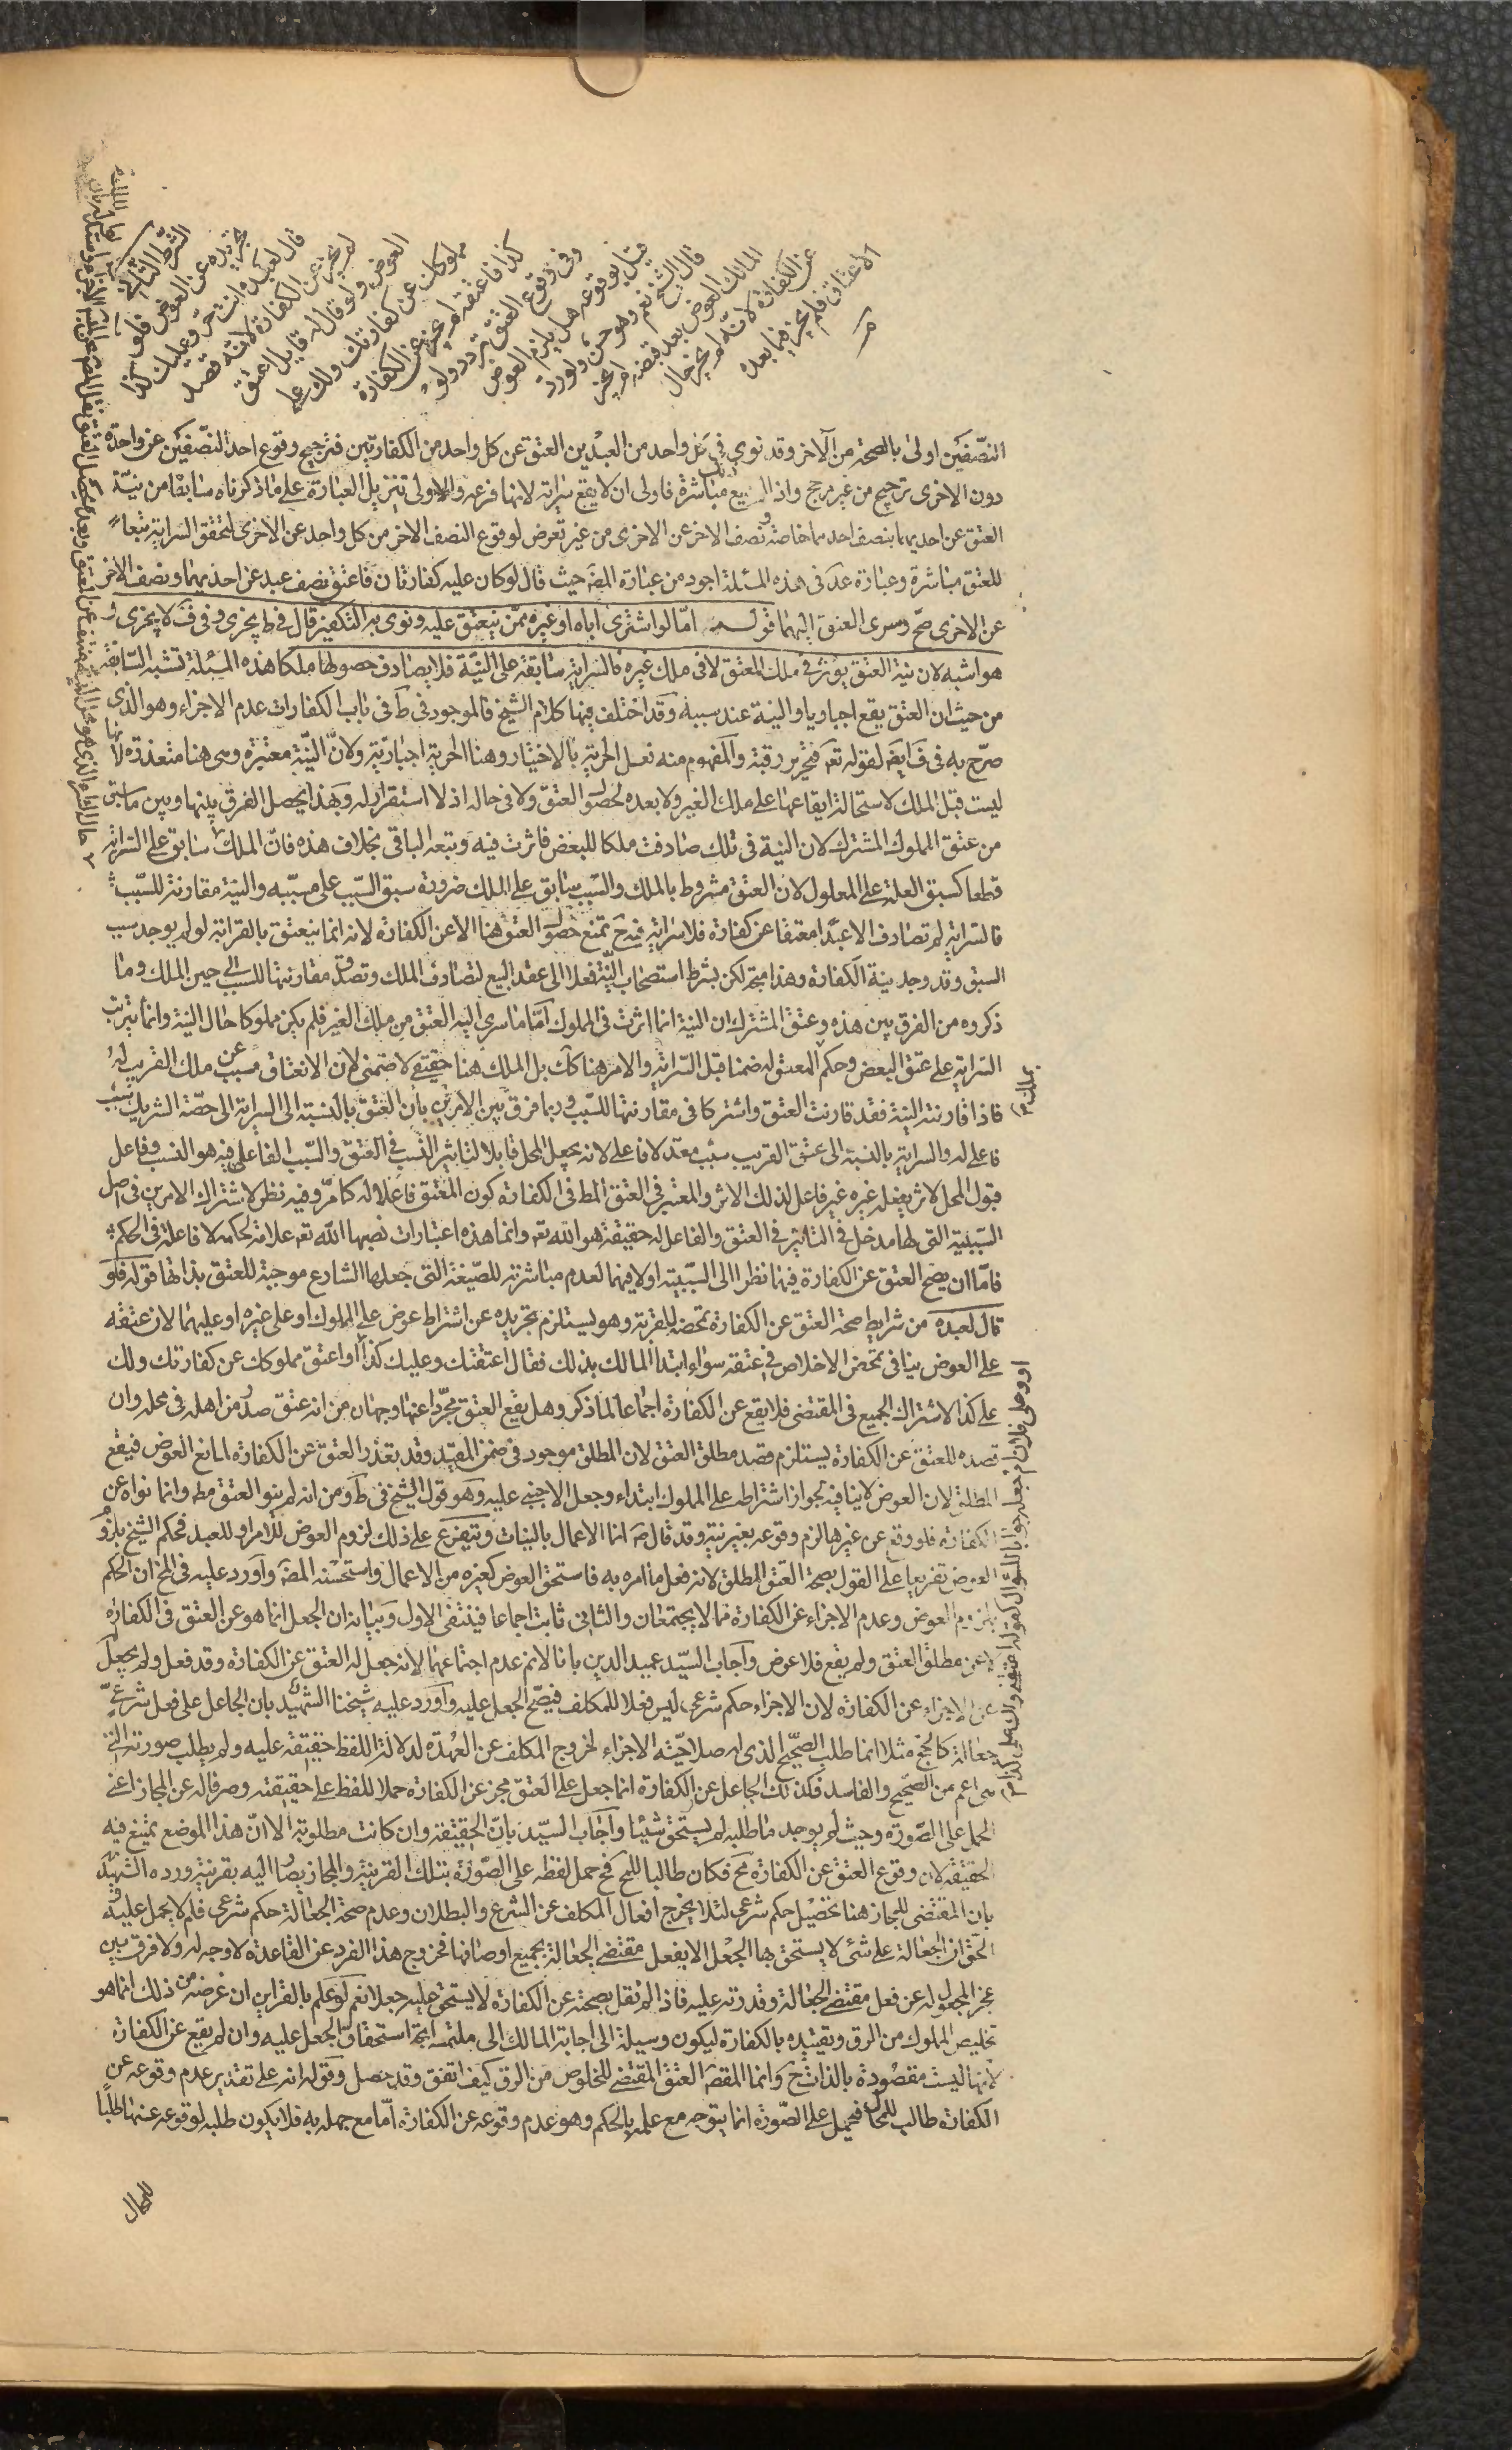 الشرط الثالث
تجريده عن العوض فلو
قال لعبده وانت حر وعليك كذا
لم يجز عن الكفارة لانه قصد
العوض ولو قال له قايل اعتق
مملوكك عن كفارتك ولك على
كذا فاعتقه لم يجز عن الكفارة
وفى وقوع العتق تردد ولو
قيل بوقوعه هل يلزم العوض
قال الشيخ نعم وهو حسن ولو رد
المالك العوض بعد قبضه لم يجز
عن الكفارة لانه لم يجز حال
الاعتاق فلم يجز فيما بعده
النصفين اولى بالصحة من الآخر وقد نوى في كل واحد من العبدين العتق عن كل واحد من الكفارتين فترجيح وقوع احد النصفين عن واحدة
دون الاخرى ترجيح من غير مرجح واذا لم يقع مباشرة فاولى ان لا يقع سراية لانها فرعه والاولى تنزيل العبارة على ما ذكرناه سابقا من نية
العتق عن احديهما بنصف احدهما خاصة ونصف الاخر عن الاخرى من غير تعرض لوقوع النصف الاخر من كل واحد عن الاخرى لتحقق السراية تبعا
للعتق مباشرة وعبارة عد فى هذه المسئلة اجود من عبارة المصَ حيث قال لو كان عليه كفارتان فاعتق نصف عبد عن احديهما ونصف الاخر
عن الاخرى صح وسرى العتق اليهما قوله اما لو اشترى اباه او غيره ممن ينعتق عليه ونوى به التكفير قال في ط يجزى وفى فَ لا يجزى و
هو اشبه لان نية العتق يؤثر فى ملك المعتق لا فى ملك غيره فالسراية سابقة على النية فلا يصادف حصولها ملكا هذه المسئلة تشبه السابقة
من حيث ان العتق يقع اجباريا والنية عند سببه وقد اختلف فيها كلام الشيخ فالموجود فى طَ فى باب الكفارات عدم الاجزاء وهو الذى
صرح به فى فَ ايضَ لقوله تعَ فتحرير رقبة والمفهوم منه فعل الحرية بالاختيار وهنا الحرية اجبارية ولان النية معتبرة وهى هنا متعذرة لانها
ليست قبل الملك لاستحالة ايقاعها على ملك الغير ولا بعده لحصول العتق ولا فى حاله اذ لا استقرار له وبهذا يحصل الفرق بينها وبين ما سبق
من عتق المملوك المشترك لان النية فى تلك صادفت ملكا للبعض فاثرت فيه وتبعه الباقى بخلاف هذه فان الملك سابق على السراية
قطعا كسبق العلة على المعلول لان العتق مشروط بالملك والسبب سابق على الملك ضرورة سبق السبب على مسببه والنية مقارنة للسبب
فالسراية لم تصادف الا عبدا معتقا عن كفارة فلا سراية فيه حَ تمنع حصول العتق هنا الا عن الكفارة لانه انما ينعتق بالقرابة لو لم يوجد سبب
السبق وقد وجد بنية الكفارة وهذا متجه لكن بشرط استصحاب النية فعلا الى عقد البيع لتصادف الملك وتصدق مقارنتها للسبب الى حين الملك وما
ذكروه من الفرق بين هذه وعتق المشترك ان النية انما اثرت فى المملوك اما ما سرى اليه العتق من ملك الغير فلم يكن مملوكا حال النية وانما ترتب
السراية على عتق البعض وحكم المعتق له ضمنا قبل السراية والامر هنا كَك بل الملك هنا حقيقى لا ضمنى لان الانعتاق مسبب عن ملك القريب له
فاذا قارنته النية فقد قارنت العتق واشتركا فى مقارنتها للسبب وربما فرق بين الامرين بان العتق بالنسبة الى السراية الى حصة الشريك سبب
فاعلى له والسراية بالنسبة الى عتق القريب سبب معد لا فاعلى لانه يجعل المحل قابلا لتاثير النسب فى العتق والسبب الفاعلى فيه هو النسب وفاعل
قبول المحل لاثر يفعله غيره غير فاعل لذلك الاثر والمعتبر فى العتق المط فى الكفارة كون المعتق فاعلا له كما مر وفيه نظر لاشتراك الامرين فى اصل
السببية التى لها مدخل فى التاثير فى العتق والفاعل له حقيقة هو الله تعَ وانما هذه اعتبارات نصبها الله تعَ علامة لحكمه لا فاعلة فى الحكم
فاما ان يصح العتق عن الكفارة فيهما نظرا الى السببية او لا فيهما لعدم مباشرته للصيغة التى جعلها الشارع موجبة للعتق بذاتها قوله فلو
قال لعبده من شرايط صحة العتق عن الكفارة تمحضه للقربة وهو يستلزم تجريده عن اشتراط عوض على المملوك او على غيره او عليهما لان عتقه
على العوض ينافى تمحض الاخلاص فى عتقه سواء ابتدا المالك بذلك فقال اعتقتك وعليك كذا او اعتق مملوكك عن كفارتك ولك
على كذا لاشتراك الجميع فى المقتضى فلا يقع عن الكفارة اجماعا لما ذكر وهل يقع العتق مجردا عنها وجهان من انه عتق صدر من اهله فى محله وان
قصده للعتق عن الكفارة يستلزم قصد مطلق العتق لان المطلق موجود فى ضمن المقيد وقد تعذر العتق عن الكفارة لمانع العوض فيقع
المطلق لان العوض لا ينافيه لجواز اشتراطه على المملوك ابتداء وجعل الاجنبى عليه وهو قول الشيخ فى طَ ومن انه لم ينو العتق مطَ وانما نواه عن
الكفارة فلو وقع عن غيرها لزم وقوعه بغير نية وقد قال صَ انما الاعمال بالنيات ويتفرع على ذلك لزوم العوض للامر او للعبد فحكم الشيخ بلزوم
العوض تفريعا على القول بصحة العتق المطلق لانه فعل ما امره به فاستحق العوض كغيره من الاعمال واستحسنه المصَ واورد عليه فى المخ ان الحكم
بلزوم العوض وعدم الاجزاء عن الكفارة مما لا يجتمعان والثانى ثابت اجماعا فينتفى الاول وبيانه ان الجعل انما هو عن العتق فى الكفارة
لا عن مطلق العتق ولم يقع فلا عوض واجاب السيد عميد الدين بانا لانم عدم اجتماعهما لانه جعل له العتق عن الكفارة وقد فعل ولم يجعل
عن الاجزاء عن الكفارة لان الاجزاء حكم شرعى ليس فعلا للمكلف فيصح الجعل عليه واورد عليه شيخنا الشهيد بان الجاعل على فعل شرعى
جعالة كالحج مثلا انما طلب الصحيح الذى له صلاحية الاجزاء لخروج المكلف عن العهدة لدلالة اللفظ حقيقة عليه ولم يطلب صورته التى
هى اعم من الصحيح والفاسد فكذلك الجاعل عن الكفارة انما جعل على العتق مجز عن الكفارة حملا للفظ على حقيقته وصرفا له عن المجاز اعنى
الحمل على الصورة وحيث لم يوجد ما طلبه لم يستحق شيئا واجاب السيد بان الحقيقة وان كانت مطلوبة الا ان هذا الموضع يمتنع فيه
الحقيقة لان وقوع العتق عن الكفارة مح فكان طالبا للمح فح حمل لفظه على الصورة بتلك القرينة والمجاز يصار اليه بقرينة ورده الشهيد
بان المقتضى للمجاز هنا تحصيل حكم شرعى لئلا يخرج افعال المكلف عن الشرع والبطلان وعدم صحة الجعالة حكم شرعى فلم لا يحمل عليه و
الحق ان الجعالة على شئ لا يستحق بها الجعل الا بفعل مقتضى الجعالة بجميع اوصافها فخروج هذا الفرد عن القاعدة لا وجه له ولا فرق بين
عجز المجعول له عن فعل مقتضى الجعالة وقدرته عليه فاذا لم نقل بصحته عن الكفارة لا يستحق عليه جعلا نعم لو علم بالقراين ان غرضه من ذلك انما هو
تخليص المملوك من الرق وتقييده بالكفارة ليكون وسيلة الى اجابة المالك الى ملتمسه اتجه استحقاق الجعل عليه وان لم يقع عن الكفارة
لانها ليست مقصودة بالذات حَ وانما المقصَ العتق المقتضى للخلوص من الرق كيف اتفق وقد حصل وقوله انه على تقدير عدم وقوعه عن
الكفارة طالب للمحال فيحمل على الصورة انما يتوجه مع علمه بالحكم وهو عدم وقوعه عن الكفارة اما مع جهله به فلا يكون طلبه لوقوعه عنها طلبا
للمحال